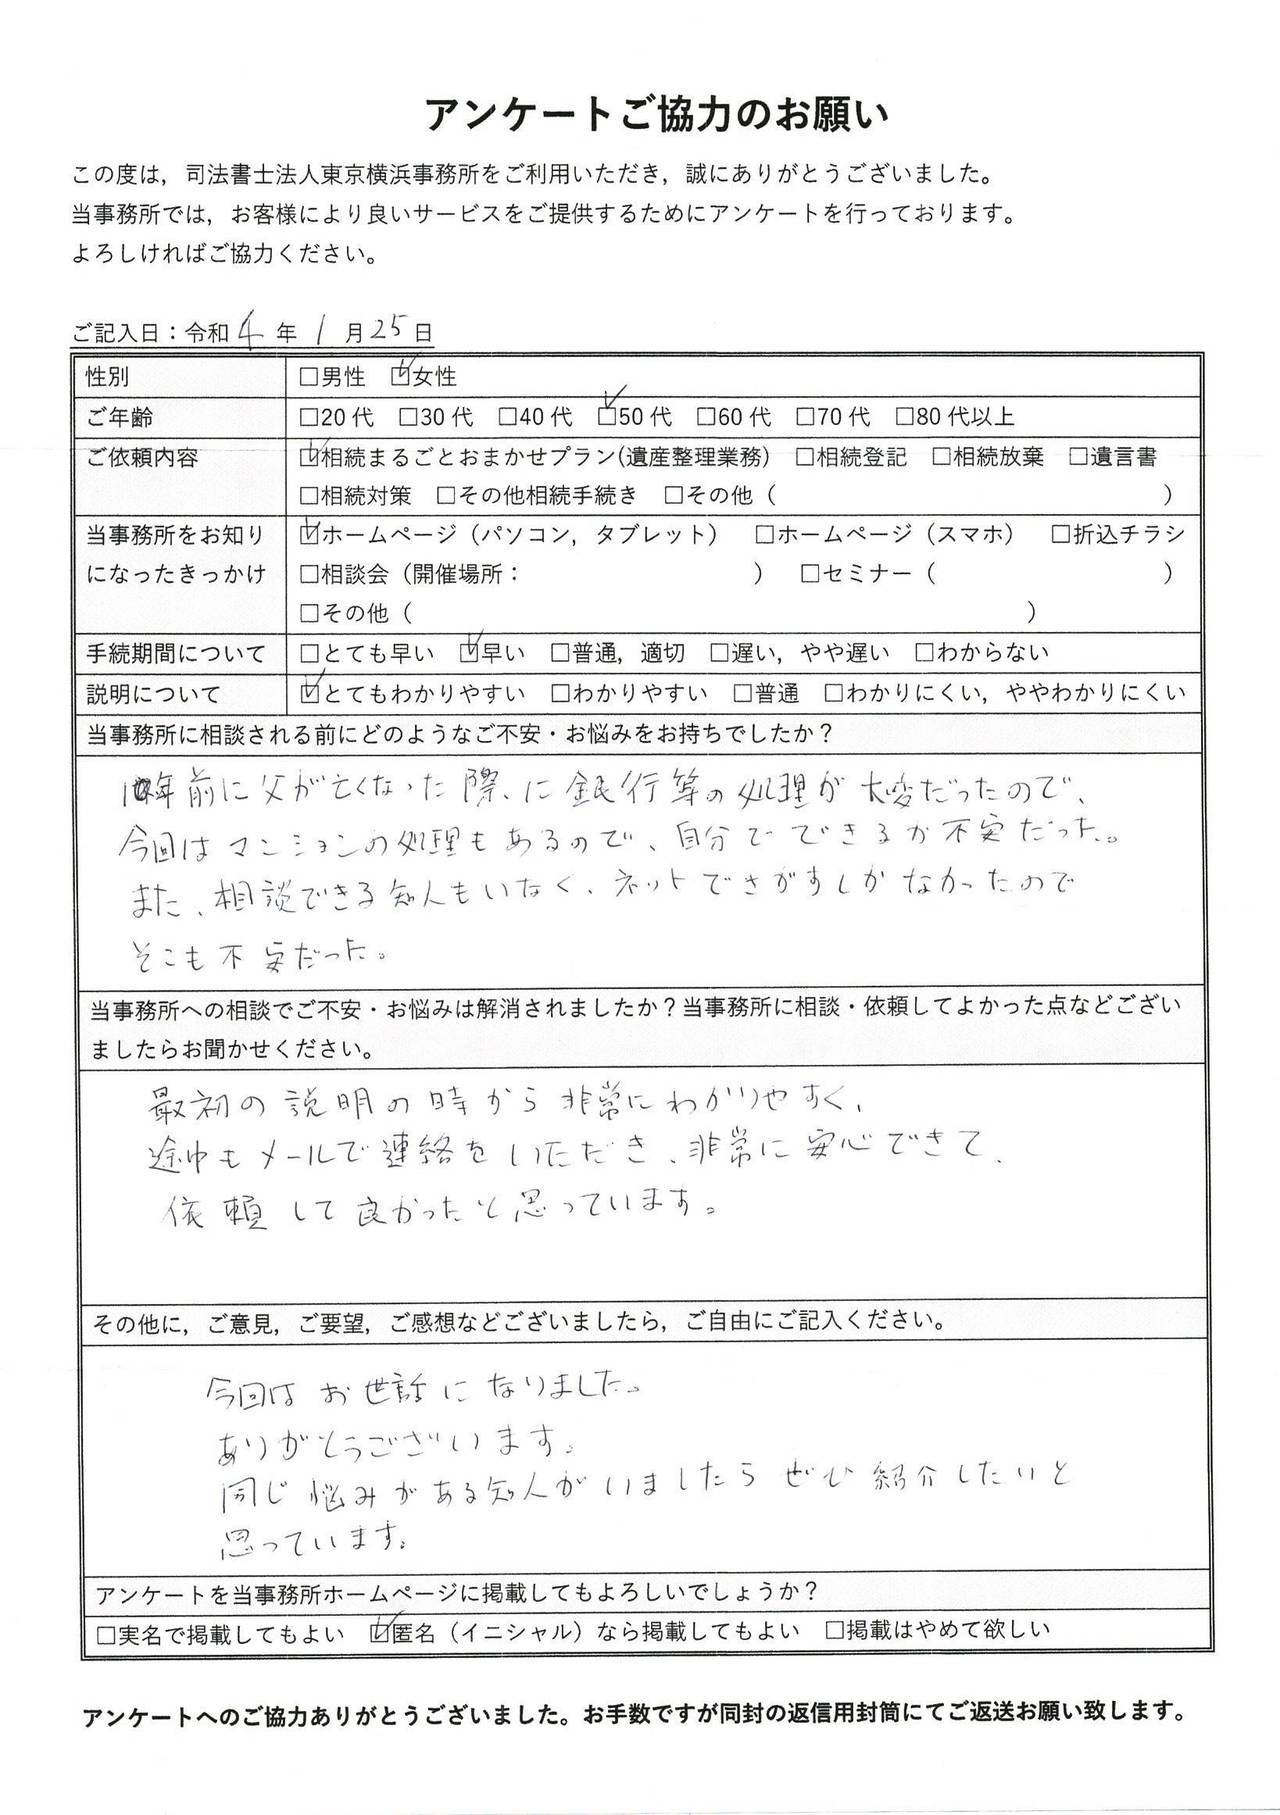 アンケートご協力のお願い
この度は，司法書士法人東京横浜事務所をご利用いただき，誠にありがとうございました。
当事務所では，お客様により良いサービスをご提供するためにアンケートを行っております。
よろしければご協力ください。
ご記入日：令和 4 年 1 月 25 日
性別 □男性 ☑女性
ご年齢 □20 代 □30 代 □40 代 ☑50 代 □60 代 □70 代 □80 代以上
ご依頼内容 ☑相続まるごとおまかせプラン(遺産整理業務) □相続登記 □相続放棄 □遺言書
□相続対策 □その他相続手続き □その他（ ）
当事務所をお知り ☑ホームページ（パソコン，タブレット） □ホームページ（スマホ） □折込チラシ
になったきっかけ □相談会（開催場所： ） □セミナー（ ）
□その他（ ）
手続期間について □とても早い ☑早い □普通，適切 □遅い，やや遅い □わからない
説明について ☑とてもわかりやすい □わかりやすい □普通 □わかりにくい，ややわかりにくい
当事務所に相談される前にどのようなご不安・お悩みをお持ちでしたか？
年前に父が亡くなった際、に銀行等の処理が大変だったので、
今回はマンションの処理もあるので、自分でできるか不安だった。
また、相談できる知人もいなく、ネットでさがすしかなかったので
そこも不安だった。
当事務所への相談でご不安・お悩みは解消されましたか？当事務所に相談・依頼してよかった点などござい
ましたらお聞かせください。
最初の説明の時から非常にわかりやすく、
途中もメールで連絡をいただき、非常に安心できて、
依頼して良かったと思っています。
その他に，ご意見，ご要望，ご感想などございましたら，ご自由にご記入ください。
今回はお世話になりました。
ありがとうございます。
同じ悩みがある知人がいましたらぜひ紹介したいと
思っています。
アンケートを当事務所ホームページに掲載してもよろしいでしょうか？
□実名で掲載してもよい ☑匿名（イニシャル）なら掲載してもよい □掲載はやめて欲しい
アンケートへのご協力ありがとうございました。お手数ですが同封の返信用封筒にてご返送お願い致します。